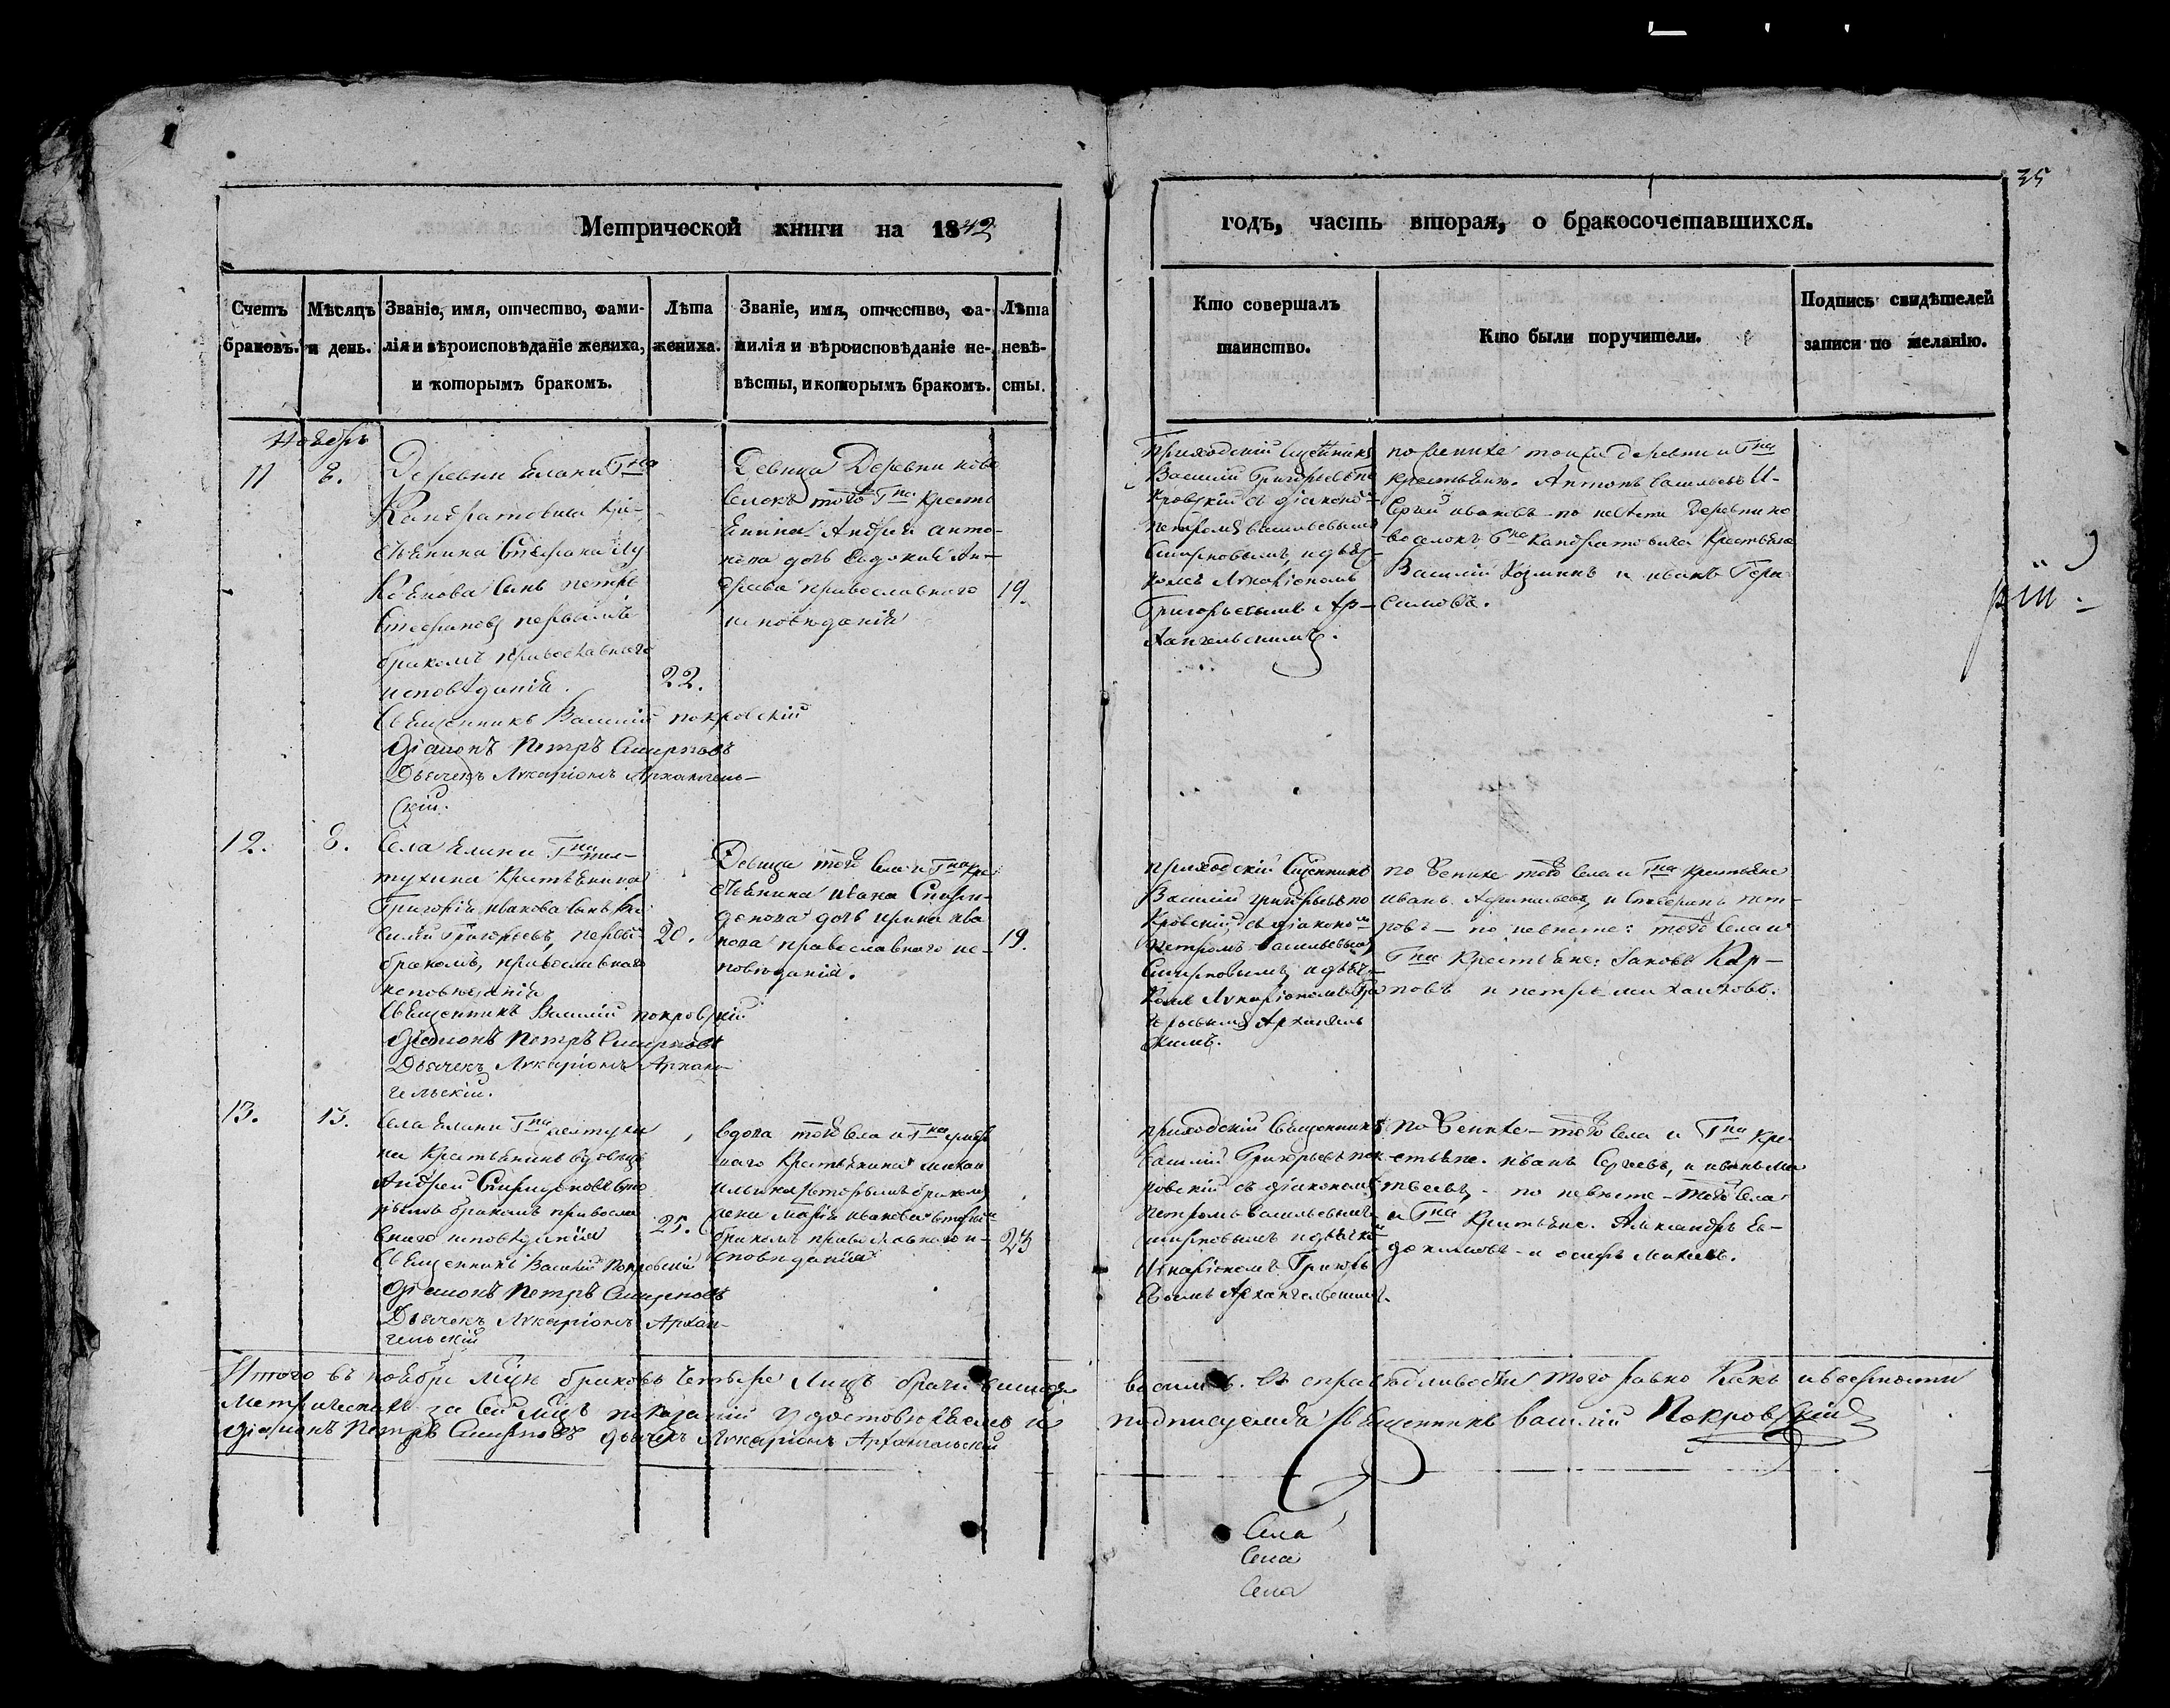 35
Метрической книги на 1842
годъ, часть вторая, о бракосочетавшихся.
Счетъ браковъ.
Мѣсяцъ и день.
Званіе, имя, отчество, фами-
лія и вѣроисповѣданіе жениха,
и которымъ бракомъ.
Лѣта жениха.
Званіе, имя, отчество, фа-
милія и вѣроисповѣданіе не-
вѣсты, и которымъ бракомъ.
Лѣта невѣ-
сты.
Кто совершалъ
таинство.
Кто были поручители.
Подпись свидѣтелей
записи по желанію.
Ноябрь
11
8.
Деревни Гна
Кандратовича Кре-
стьянина Стефана Лу
сынъ Петръ
Стефановъ первымъ
бракомъ православнаго
исповѣданія.
22.
Священникъ Василій Покровскій
Діаконъ Петръ Смирновъ
Дьячекъ Иларіонъ Архангель-
скій.
Девица Деревни ново
селокъ того Гна кресть
янина Андрея Анто-
нова дочь Евдокия Ан-
дреева православного
исповѣданія
19.
Приходскій Сщенникъ
Василий Григорьевъ По
кровский съ діакono-
Петромъ Васильевымъ
Смирновымъ, и дьяч-
комъ Иларіономъ
Григорьевымъ Ар-
хангельскимъ.
по женихе тойже деревни и Гна
крестьяне. Антонъ Васильевъ И-
Сергей Ивановъ - по невѣсте Деревни но
воселокъ Гна Кандратовича Крестьяне
Василий Козминъ и Иванъ Гера
симовъ.
12.
8.
Села Гна
тухина Крестьянина
Григорія Иванова сынъ Ва
силій Григорьевъ, первы
бракомъ, православнаго
исповѣданія
20.
Священникъ Василий Покровскій
Діаконъ Петръ Смирновъ
Дьячекъ Иларіонъ Архан-
гельскій.
Девица того села и Гна Кре
стьянина Ивана Спири-
донова дочь Ирина Ива
нова православного ис-
поведанія.
19.
приходскій Сщенникъ
Василий Григорьевъ По
кровский, съ діакономъ
Петромъ Васильевымъ
Смирновымъ, и дьяч-
комъ Иларіономъ Гри
горьевымъ Архангель
скимъ.
по Женихе того села и Гна крестьяне
Иванъ и Стефанъ Пет-
ровъ - по невѣсте: того села и
Гна Крестьяне: Іаковъ Кар-
повъ и Петръ
13.
13.
Села Гна
на Крестьянинъ вдовецъ
Андрей Спиридоновъ вто
рымъ бракомъ правосла
внаго исповѣданія
25.
Священникъ Василий Покровскій
Діаконъ Петръ Смирновъ
Дьячекъ Иларіонъ Архан-
гельскій
вдова того села и Гна умер
шаго Крестьянина Михаи
жена Марія Иванова вторымъ
бракомъ православнаго и-
споведанія
23
приходскій Священникъ
Василий Григорьевъ Пок-
ровский съ діакономъ
Петромъ Васильевымъ
Смирновымъ и дьячко
Иларіономъ Григорь
евымъ Архангельскимъ.
по Женихе - того села и Гна Кре-
стьяне. Иванъ Сергеевъ, и Иванъ Ма
твеевъ, - по невѣсте - того села
и Гна Крестьяне. Александръ Ев-
докимовъ - и Осипъ
Итого въ ноябре мцѣ браковъ четыре лицъ брачившихся
восимь. въ справедливости того равно какъ и въ верности
діаконъ Петръ Смирновъ дьячекъ Иларіонъ Архангельскій
подписуемся Священникъ Василий Покровскій
Села
Села
Села